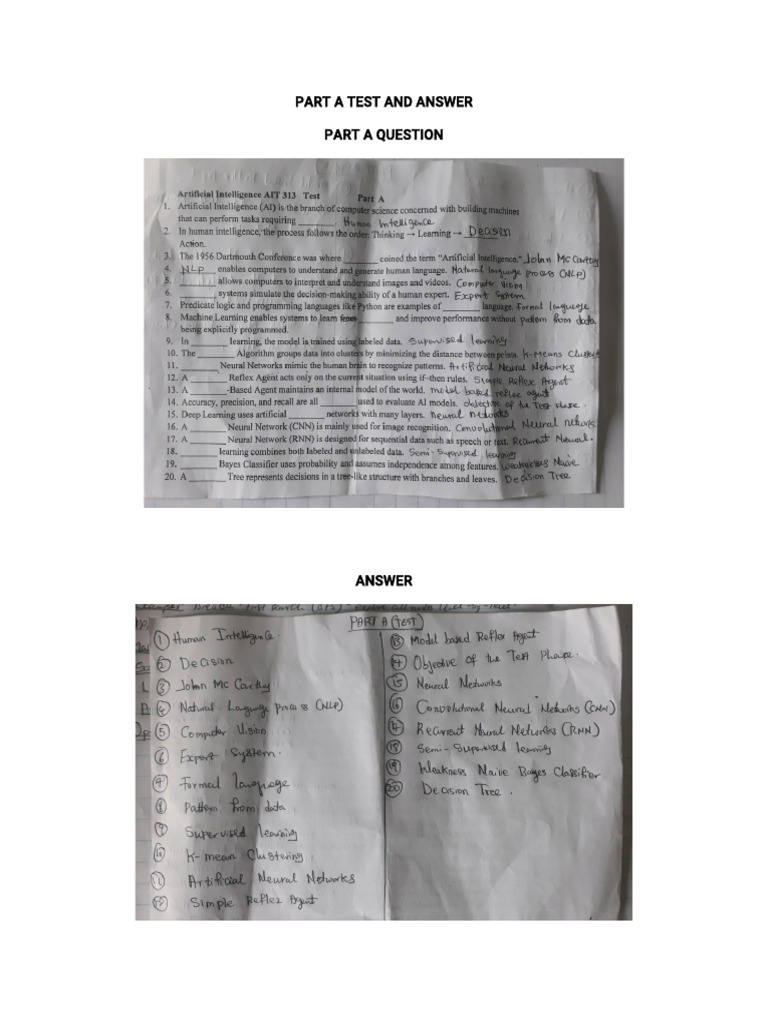 PART A TEST AND ANSWER
PART A QUESTION
Artificial Intelligence AIT 313 Test Part A
1. Artificial Intelligence (AI) is the branch of computer science concerned with building machines
that can perform tasks requiring ______. Human Intelligence
2. In human intelligence, the process follows the order: Thinking → Learning → Decision
Action.
3. The 1956 Dartmouth Conference was where ______ coined the term "Artificial Intelligence." John Mc Carthy
4. NLP enables computers to understand and generate human language. Natural language process (NLP)
5. ______ allows computers to interpret and understand images and videos. Computer Vision
6. ______ systems simulate the decision-making ability of a human expert. Expert System
7. Predicate logic and programming languages like Python are examples of ______ language. Formal language
8. Machine Learning enables systems to learn from ______ and improve performance without pattern from data
being explicitly programmed.
9. In ______ learning, the model is trained using labeled data. Supervised learning
10. The ______ Algorithm groups data into clusters by minimizing the distance between points. K-Means Cluste
11. ______ Neural Networks mimic the human brain to recognize patterns. Artificial Neural Networks
12. A ______ Reflex Agent acts only on the current situation using if-then rules. Simple Reflex Agent
13. A ______-Based Agent maintains an internal model of the world. model based reflex agent
14. Accuracy, precision, and recall are all ______ used to evaluate AI models. objective of the Test phase.
15. Deep Learning uses artificial ______ networks with many layers. Neural networks
16. A ______ Neural Network (CNN) is mainly used for image recognition. Convolutional Neural network
17. A ______ Neural Network (RNN) is designed for sequential data such as speech or text. Recurrent Neural.
18. ______ learning combines both labeled and unlabeled data. Semi-Supervised learning
19. ______ Bayes Classifier uses probability and assumes independence among features. Naive
20. A ______ Tree represents decisions in a tree-like structure with branches and leaves. Decision Tree
ANSWER
PART A (TEST)
① Human Intelligence.
② Decision
③ John Mc Carthy
④ Natural Language process (NLP)
⑤ Computer Vision
⑥ Expert System.
⑦ Formal language
⑧ Pattern from data
⑨ Supervised learning
⑩ K-mean Clustering
⑪ Artificial Neural Networks
⑫ Simple Reflex Agent
⑬ Model based Reflex Agent
⑭ Objective of the Test Phase.
⑮ Neural Networks
⑯ Convolutional Neural Networks (CNN)
⑰ Recurrent Neural Networks (RNN)
⑱ Semi-Supervised learning
⑲ Weakness Naive Bayes Classifier
⑳ Decision Tree.